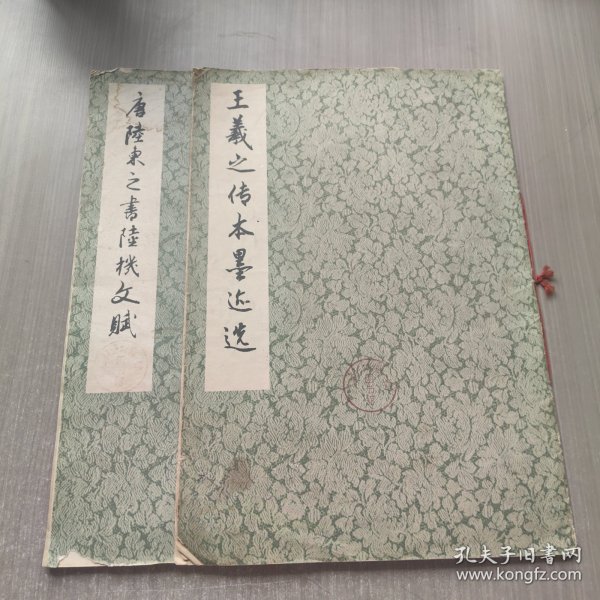 王羲之传本墨迹选
唐陸柬之書陸機文賦
孔夫子旧书网
www.kongfz.com